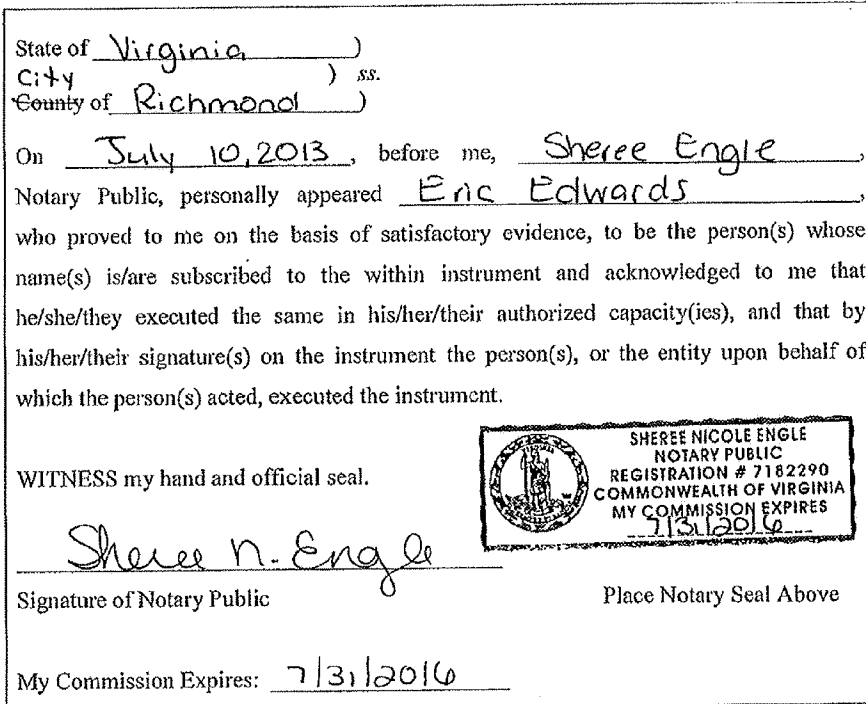 State of Virginia )
City ) ss.
County of Richmond )
On July 10, 2013, before me, Sheree Engle,
Notary Public, personally appeared Eric Edwards,
who proved to me on the basis of satisfactory evidence, to be the person(s) whose
name(s) is/are subscribed to the within instrument and acknowledged to me that
he/she/they executed the same in his/her/their authorized capacity(ies), and that by
his/her/their signature(s) on the instrument the person(s), or the entity upon behalf of
which the person(s) acted, executed the instrument.
WITNESS my hand and official seal.
SHEREE NICOLE ENGLE
NOTARY PUBLIC
REGISTRATION # 7182290
COMMONWEALTH OF VIRGINIA
MY COMMISSION EXPIRES
7/31/2016
Sheree N. Engle
Signature of Notary Public
Place Notary Seal Above
My Commission Expires: 7/31/2016